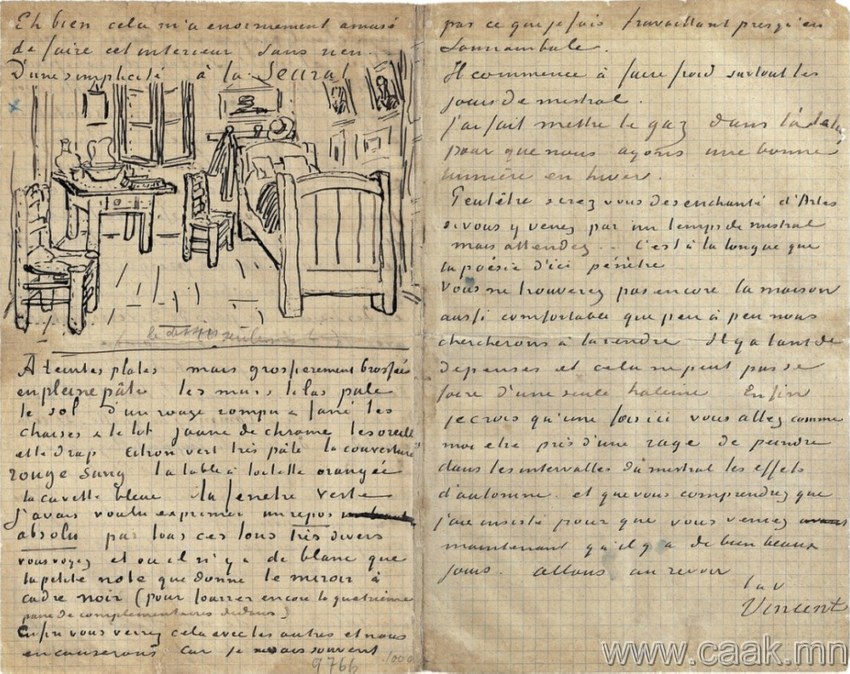 Eh bien cela m'a enormement amusé
de faire cet interieur sans rien.
D'une simplicité à la Seurat
A teintes plates mais grossierement brossée
en pleine pâte les murs lilas pale
le sol d'un rouge rompu & fané les
chaises & le lit jaune de chrome les oreillers
et le drap citron vert très pâle la couverture
rouge sang la table à toilette orangée
la cuvette bleue la fenetre verte
J'avais voulu exprimer un repos
absolu par tous ces tons très divers
vous voyez et ou il n'y a de blanc que
la petite note que donne le miroir à
cadre noir (pour fourrer encore la quatrième
paire de complementaires dedans)
Enfin vous verrez cela avec les autres et nous
en causerons car je ne sais souvent
9766
1000
pas ce que je fais travaillant presqu'en
somnambule.
Il commence à faire froid surtout les
jours de mistral.
J'ai fait mettre le gaz dans l'atelier
pour que nous ayons une bonne
lumière en hiver.
Peutêtre serez vous desenchanté d'Arles
si vous y venez par un temps de mistral
mais attendez .. C'est à la longue que
la poésie d'ici pénètre
Vous ne trouverez pas encore la maison
aussi confortable que peu à peu nous
chercherons à la rendre Il y a tant de
depenses et cela ne peut pas se
faire d'une seule haleine Enfin
je crois qu'une fois ici vous allez comme
moi etre pris d'une rage de peindre
dans les intervalles du mistral les effets
d'automne. et que vous comprendrez que
j'aie insisté pour que vous veniez
maintenant qu'il y a de bien beaux
jours. allons au revoir
t.a.v.
Vincent
www.caak.mn